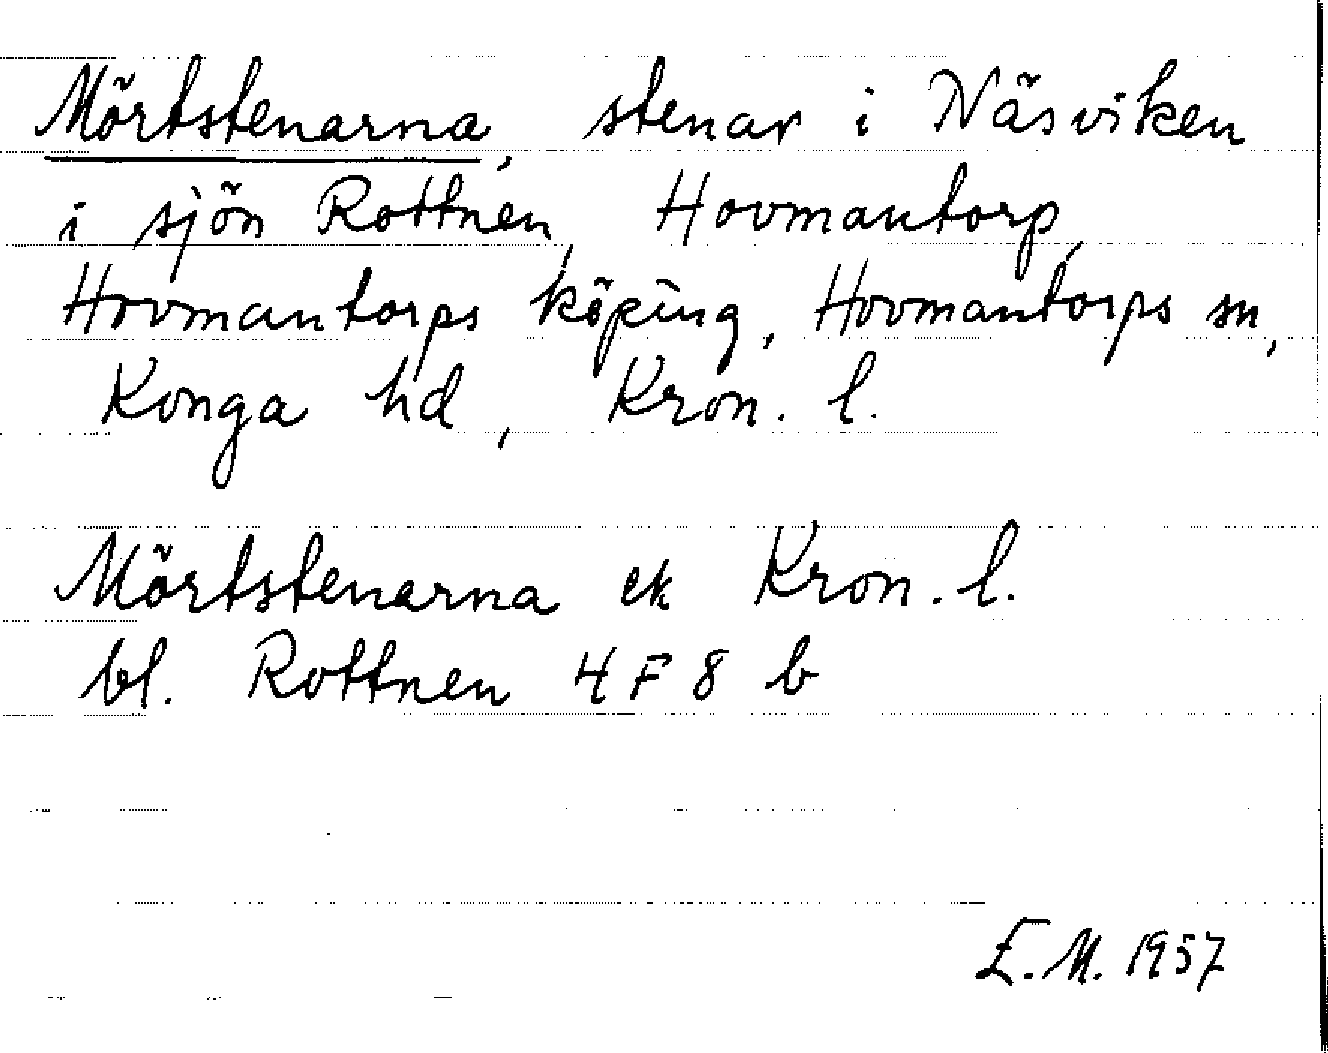 Mörtstenarna, stenar i Näsviken
i sjön Rottnen, Hovmantorp,
Hovmantorps köping, Hovmantorps sn,
Konga hd, Kron. l.
Mörtstenarna ek Kron. l.
bl. Rottnen 4 F 8 b
E. M. 1957